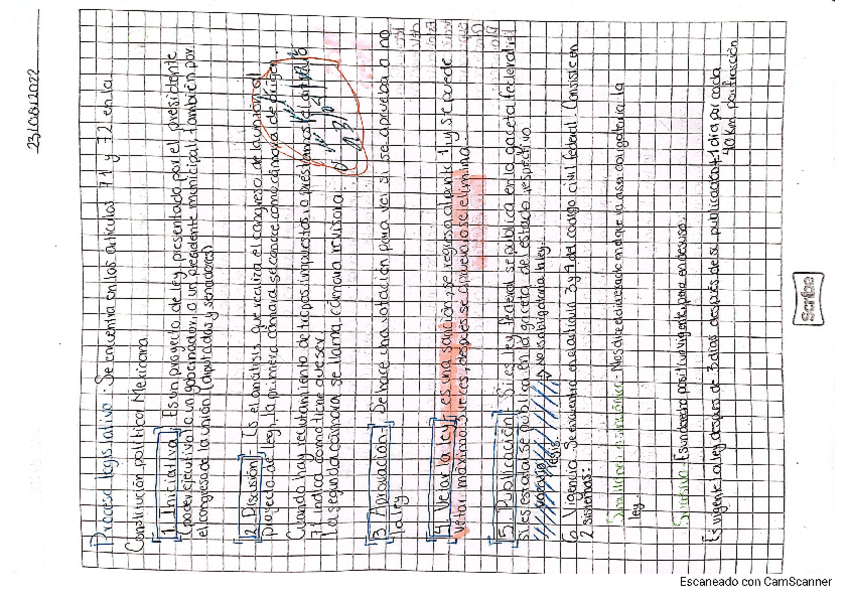 23/08/2022
Proceso legislativo. Se encuentra en los artículos 71 y 72 en la
Constitución política Mexicana
1. Iniciativa: Es un proyecto de ley, presentado por el presidente
(poder ejecutivo) a un gobernador, a un presidente municipal, también por
el congreso de la unión (diputados y senadores)
2. Discusión: Es el análisis que realiza el congreso de la unión al
proyecto de ley, la primera cámara se conoce como cámara de origen.
Cuando hay reclutamiento de tropas, impuestos, o préstamos el artículo
71 indica como tiene que ser.
La segunda cámara se llama, cámara revisora.
3. Aprovación- Se hace una votación para ver si se aprueba o no
la ley
4. Vetar la ley, es una sanción, se regresa al punto 1, y se puede
vetar máximo 3 veces, después se aprueba o se elimina.
5. Publicación: Si es ley federal se publica en la gaceta federal, si
si es estatal se publica en la gaceta del estado respectivo.
No es obligatoria la ley.
6. Vigencia- Se encuentra en el artículo 3 y 4 del código civil federal. Consiste en
2 sistemas:
Nos dice el día exacto en el que va a ser obligatoria la
ley.
Sucesivo- Es un derecho positivo vigente, pero en desuso.
Es vigente la ley después de 3 días después de su publicación +1 día por cada
40 km por fracción
Scribe
Escaneado con CamScanner